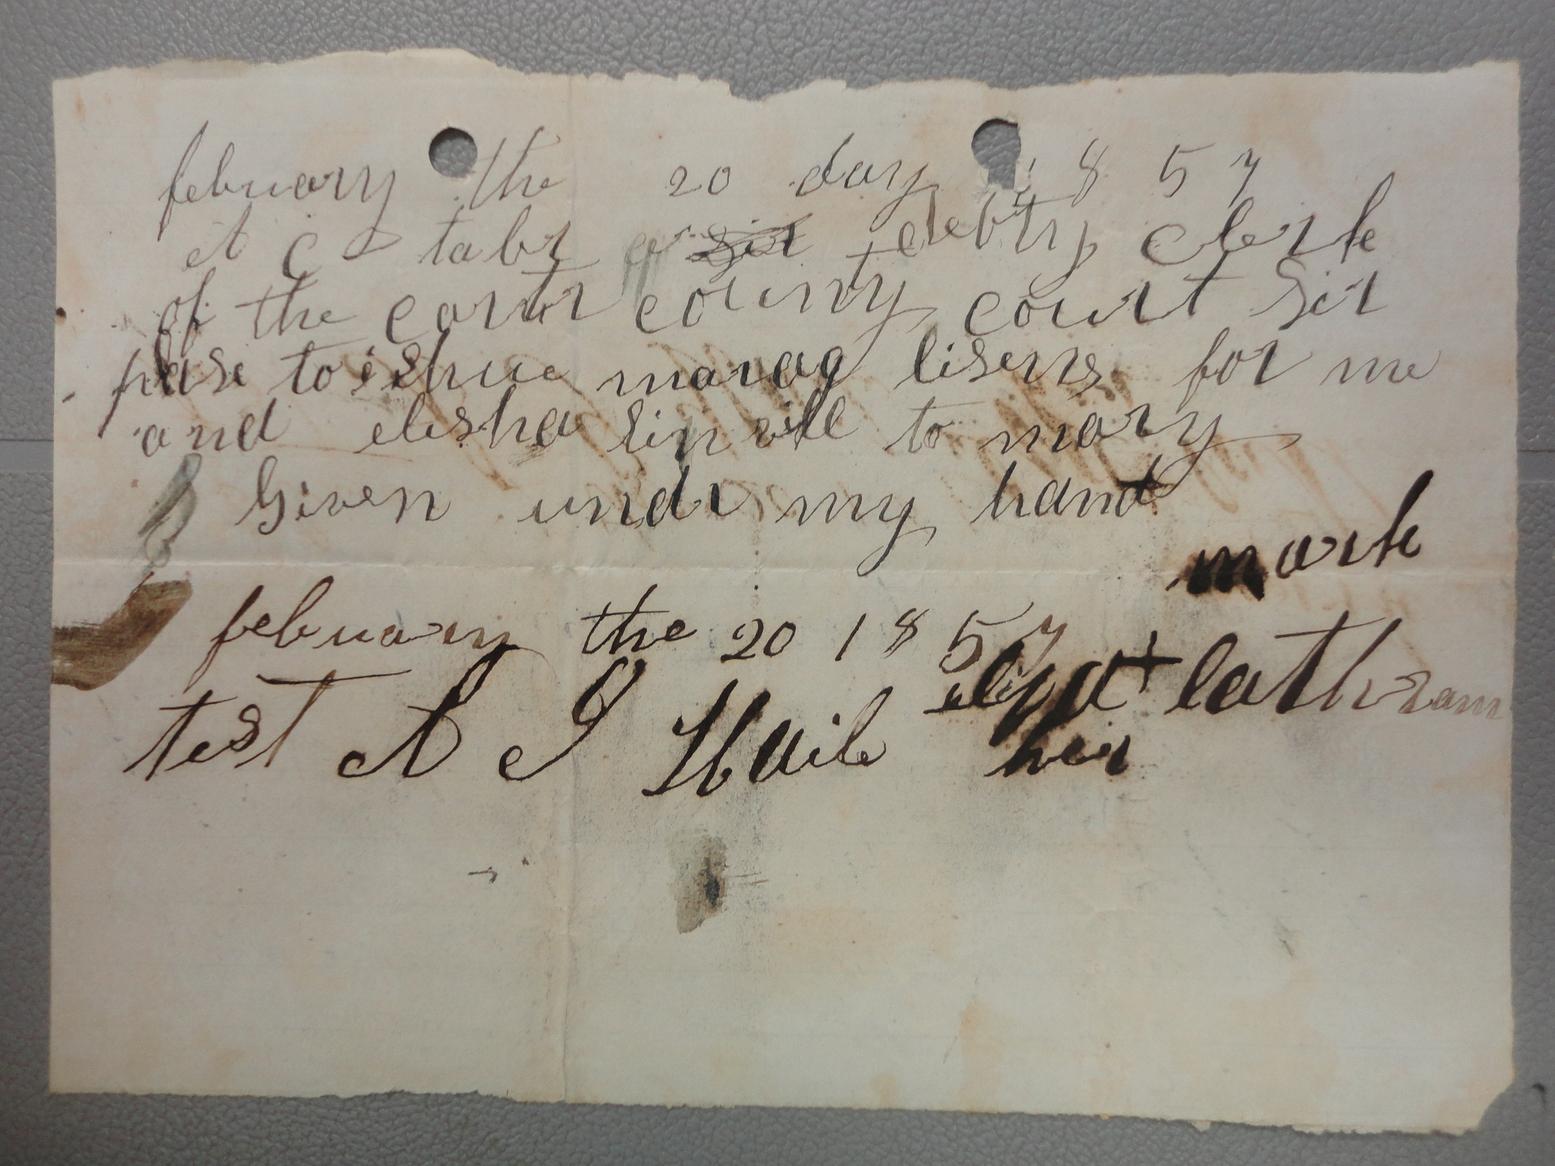 february the 20 day 1857
at c tabr a sir debty clerk
of the cort county court Sir
plase to ishue marag lisens for me
and elisha linvill to mary
Given undr my hand
mark
february the 20 1857
eliza + lathram
test A J Haile her